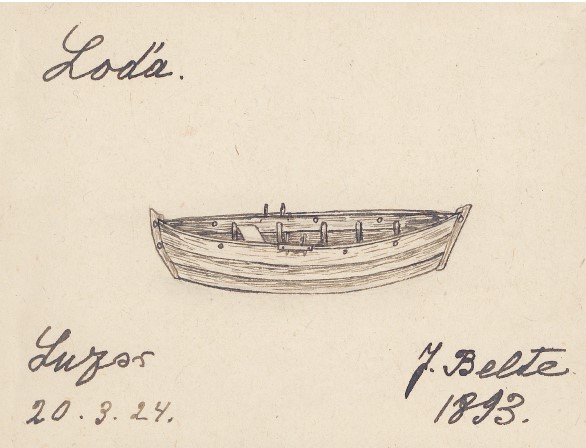 Loďa.
20.3.24.
J. Belte
1893.